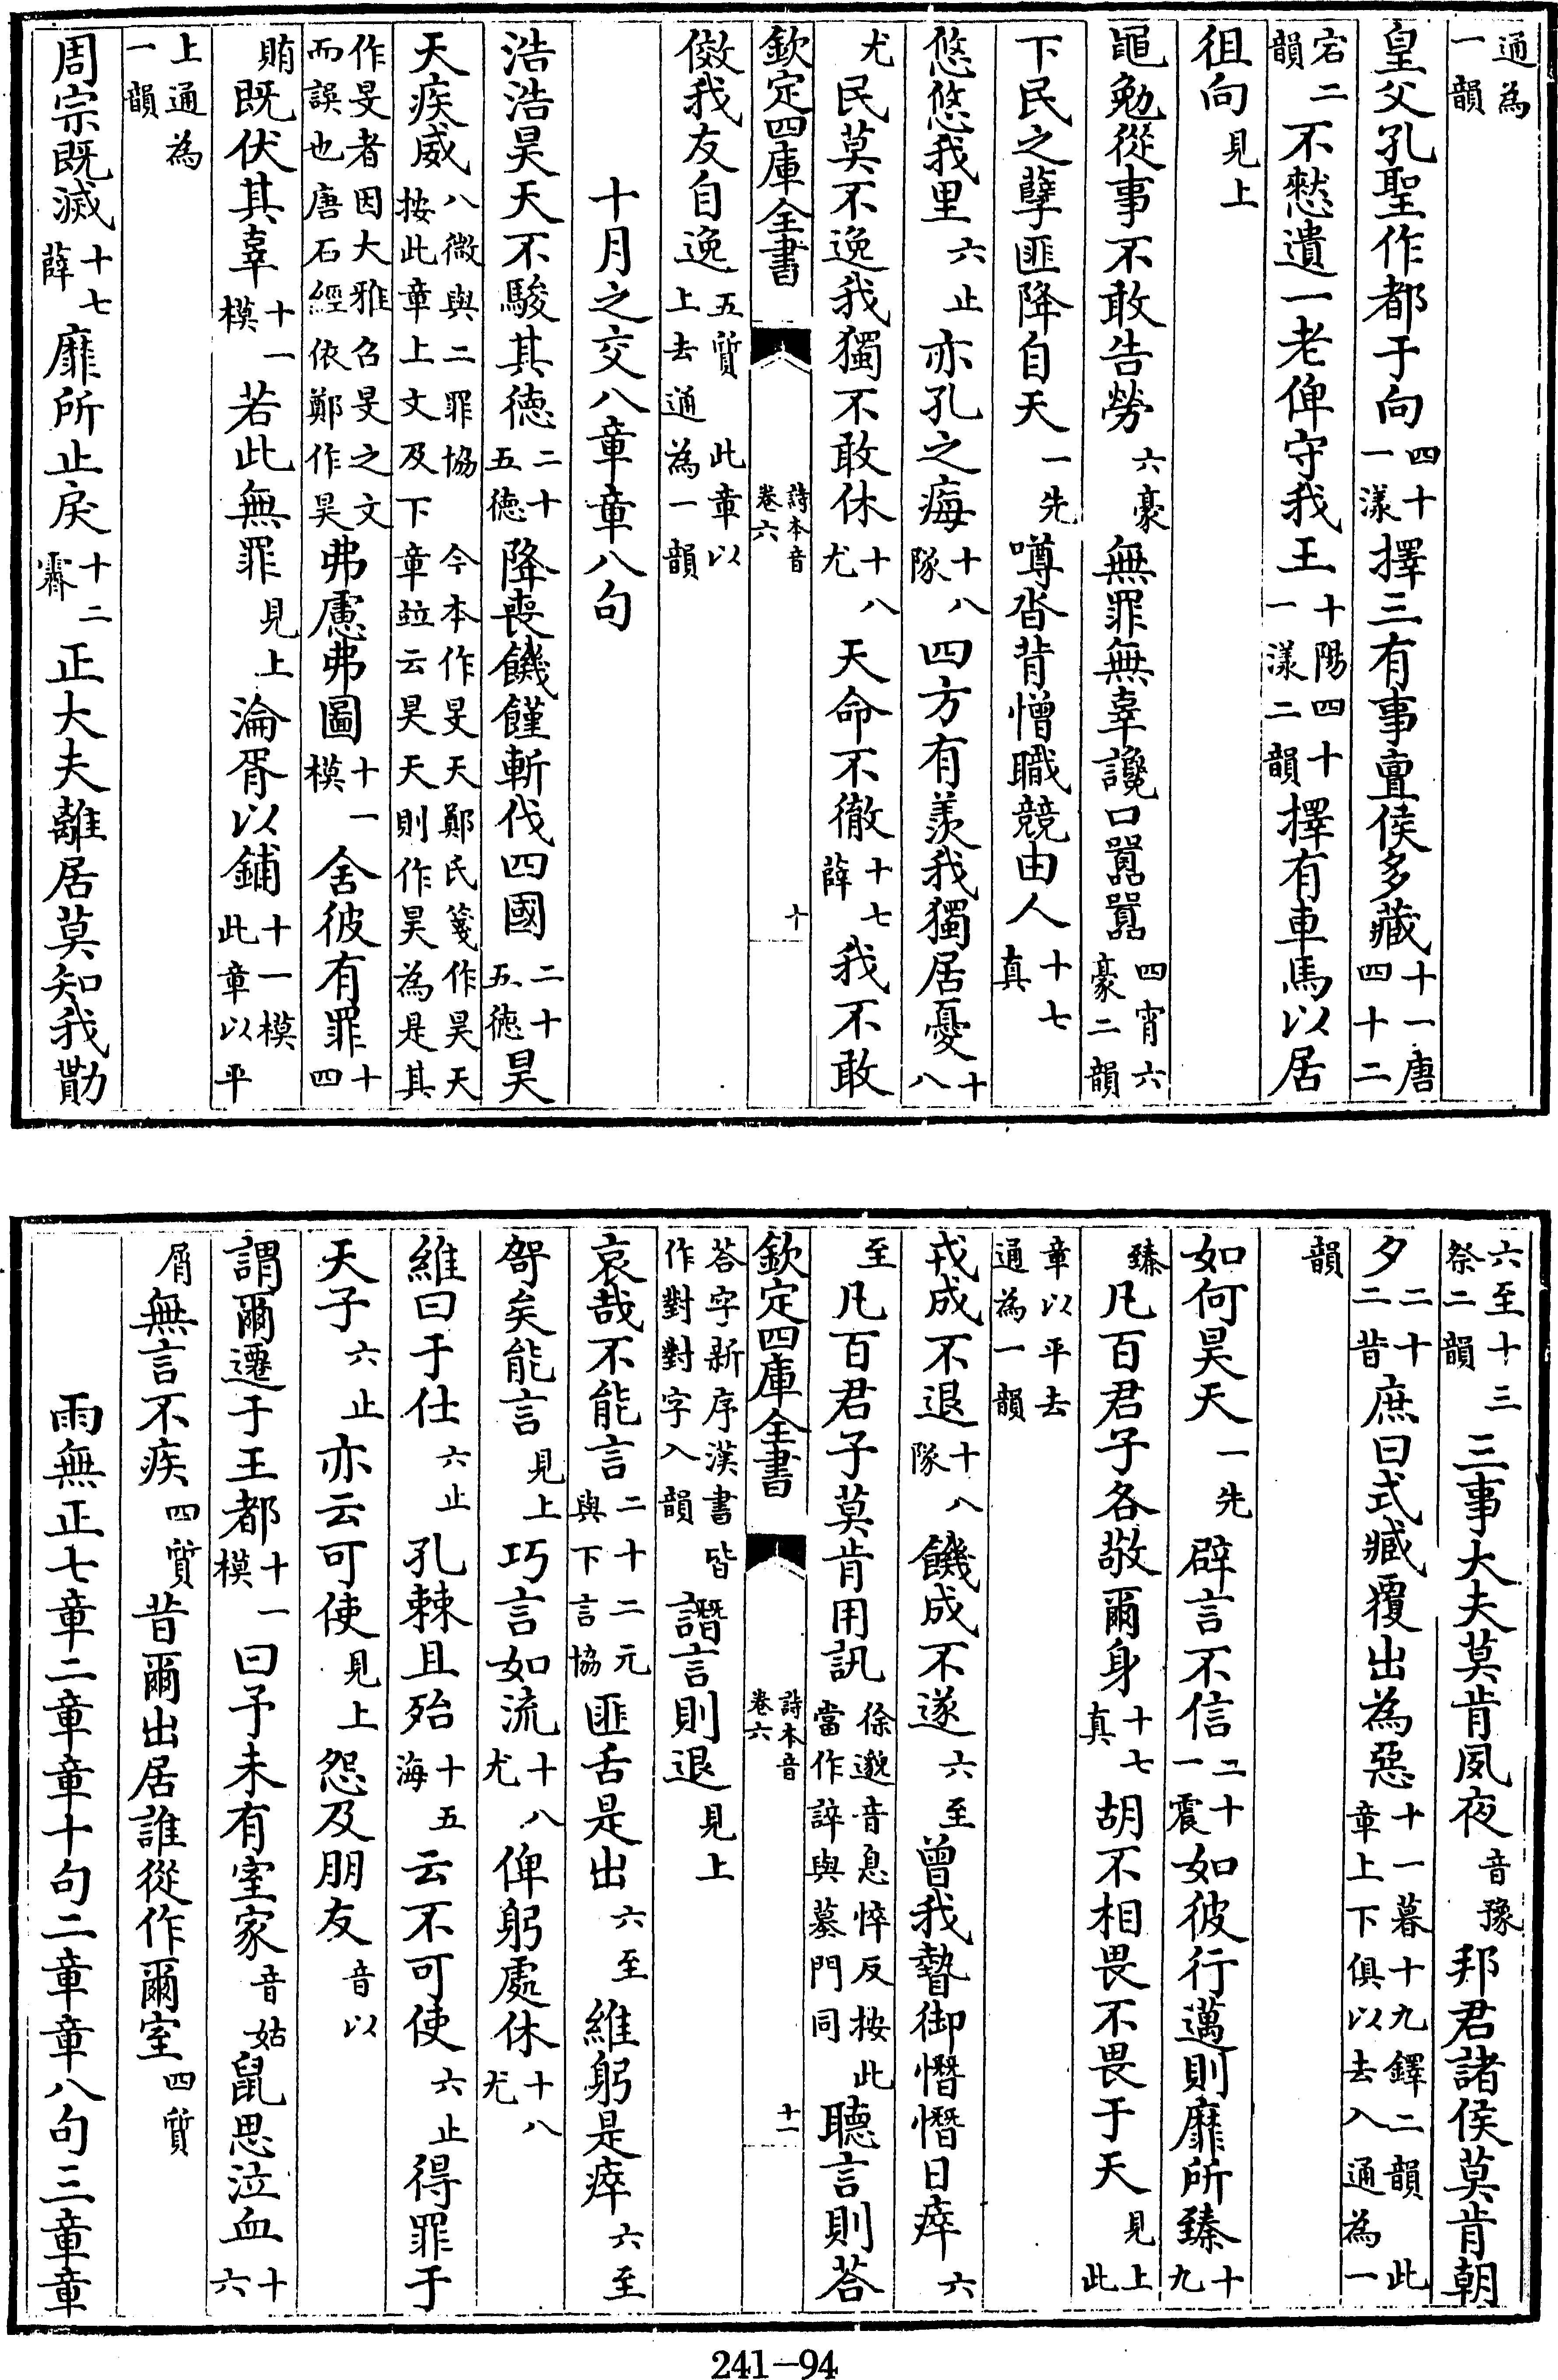 通為一韻
皇父孔聖作都于向四十一漾擇三有事亶侯多藏十一唐四十二
宕二韻不憖遺一老俾守我王十陽四十一漾二韻擇有車馬以居
徂向見上
黽勉從事不敢告勞六豪無罪無辜讒口囂囂四宵六豪二韻
下民之孽匪降自天一先噂沓背憎職競由人十七真
悠悠我里六止亦孔之痗十八隊四方有羨我獨居憂十八
尤民莫不逸我獨不敢休十八尤天命不徹十七薛我不敢
欽定四庫全書 詩本音卷六 十
傚我友自逸五質此章以上去通為一韻
十月之交八章章八句
浩浩昊天不駿其德二十五德降喪饑饉斬伐四國二十五德昊
天疾威八微與二罪協今本作旻天鄭氏箋作昊天按此章上文及下章竝云昊天則作昊為是其
作旻者因大雅召旻之文而誤也唐石經依鄭作昊弗慮弗圖十一模舍彼有罪十四
賄既伏其辜十一模若此無罪見上淪胥以鋪十一模此章以平
上通為一韻
周宗既滅十七薛靡所止戾十二霽正大夫離居莫知我勩
六至十三祭二韻三事大夫莫肯夙夜音豫邦君諸侯莫肯朝
夕二十二昔庶曰式臧覆出為惡十一暮十九鐸二韻此章上下俱以去入通為一
韻
如何昊天一先辟言不信二十一震如彼行邁則靡所臻十九
臻凡百君子各敬爾身十七真胡不相畏不畏于天見上此
章以平去通為一韻
戎成不退十八隊饑成不遂六至曾我暬御憯憯日瘁六
至凡百君子莫肯用訊徐邈音息悴反按此當作誶與墓門同聽言則荅
欽定四庫全書 詩本音卷六 十一
荅字新序漢書皆作對對字入韻譖言則退見上
哀哉不能言二十二元與下言協匪舌是出六至維躬是瘁六至
哿矣能言見上巧言如流十八尤俾躬處休十八尤
維曰于仕六止孔棘且殆十五海云不可使六止得罪于
天子六止亦云可使見上怨及朋友音以
謂爾遷于王都十一模曰予未有室家音姑鼠思泣血十六
屑無言不疾四質昔爾出居誰從作爾室四質
雨無正七章二章章十句二章章八句三章章
241-94